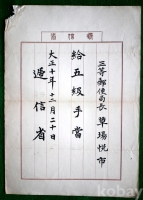 三等郵便局長 草場悦市
給五級手當
大正十年十二月二十日
逓信省
kobay